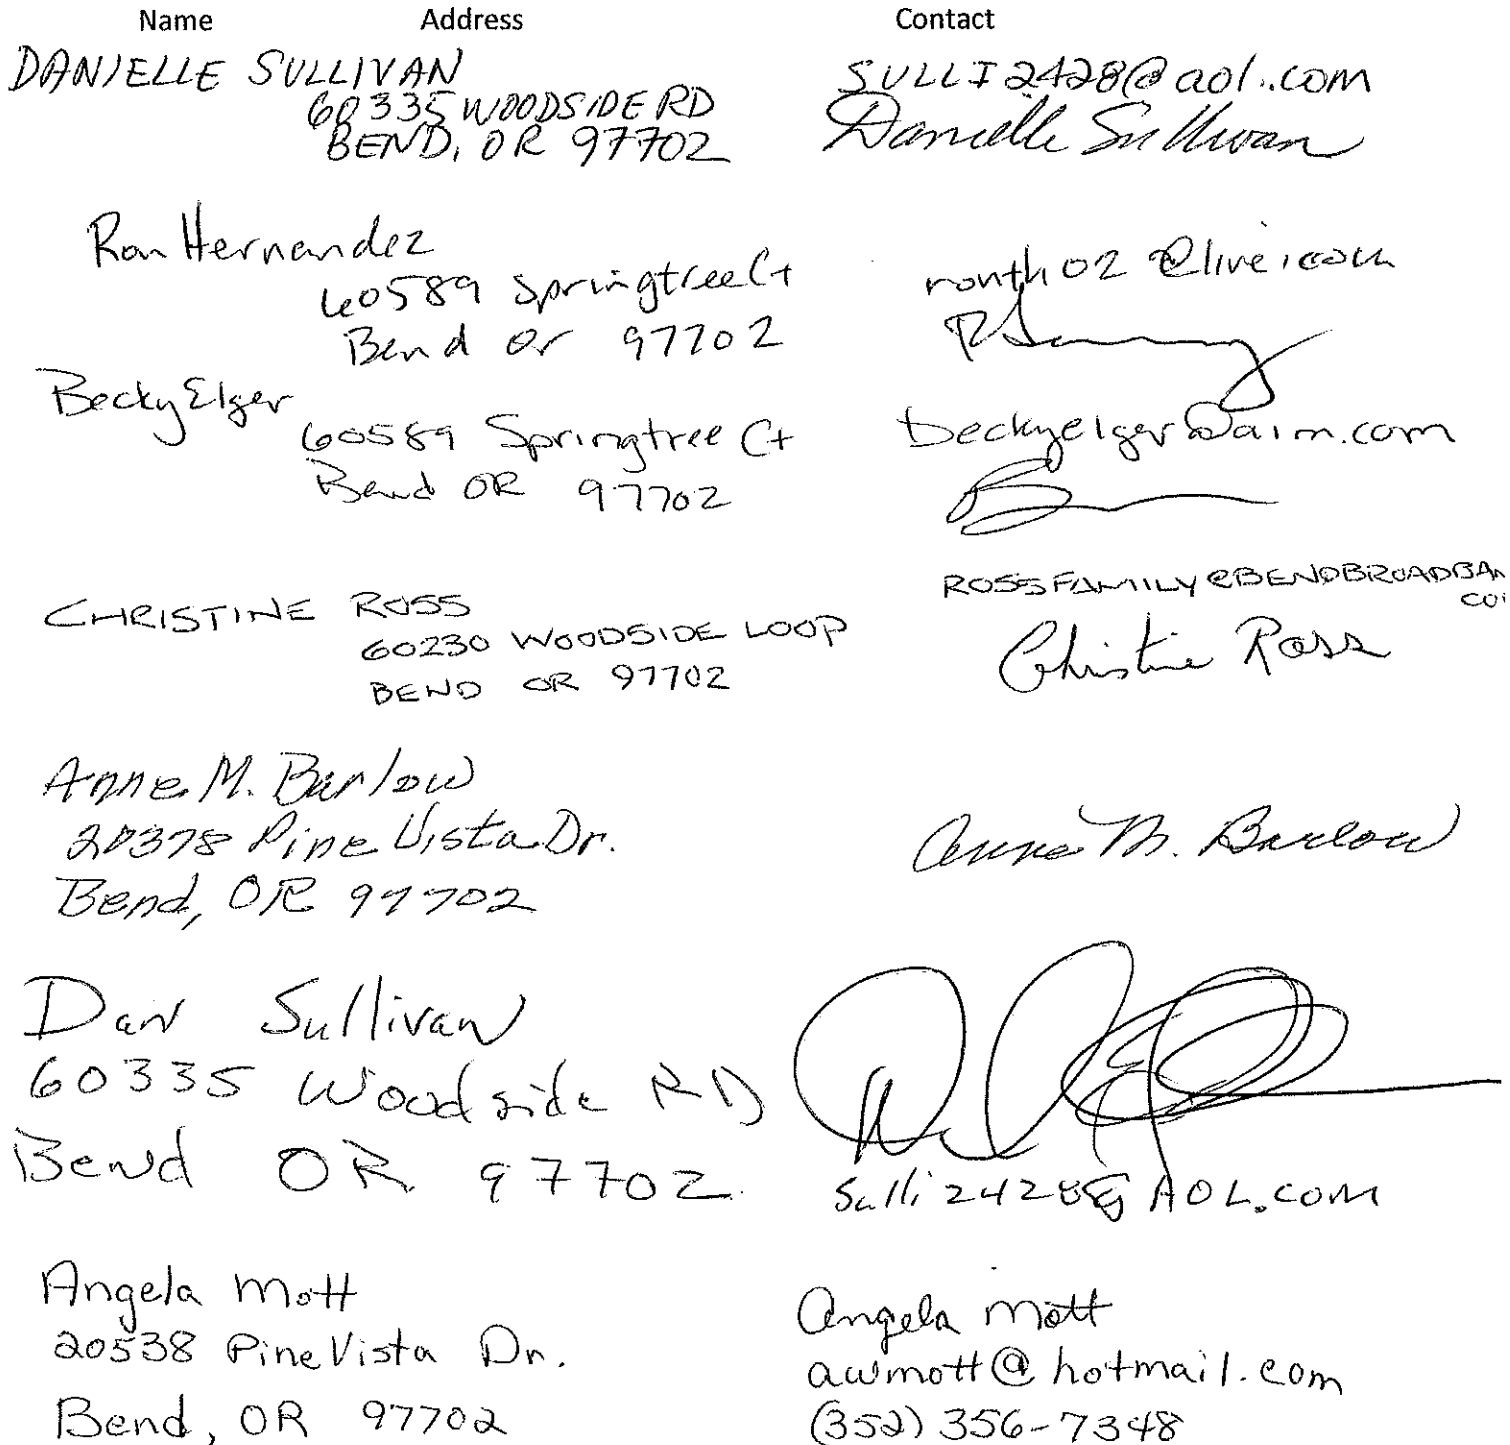 Name Address Contact
DANIELLE SULLIVAN
60335 WOODSIDE RD
BEND, OR 97702
SULLI2428@aol.com
Danielle Sullivan
Ron Hernandez
60589 Springtree Ct
Bend Or 97702
ronth02@live.com
Becky Elger
60589 Springtree Ct
Bend OR 97702
beckyelger@aim.com
CHRISTINE ROSS
60230 WOODSIDE LOOP
BEND OR 97702
ROSSFAMILY@BENDBROADBAN
CO
Christine Ross
Anne M. Barlow
20378 Pine Vista Dr.
Bend, OR 97702
Anne M. Barlow
Dan Sullivan
60335 Woodside RD
Bend OR 97702
Sulli2428@AOL.com
Angela Mott
20538 Pine Vista Dr.
Bend, OR 97702
Angela Mott
awmott@hotmail.com
(352) 356-7348